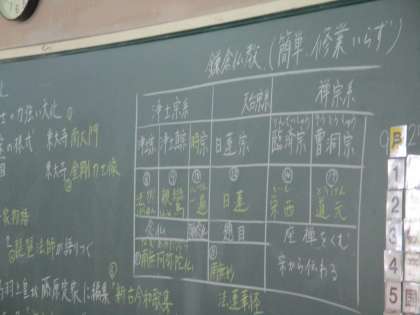 鎌倉仏教(簡単.修業いらず)
浄土宗系 天台宗系 禅宗系
浄土宗 浄土真宗 時宗 日蓮宗 臨済宗 曹洞宗
法然 親鸞 一遍 日蓮 栄西 道元
念仏 題目 座禅をくむ
南無阿弥陀仏 宋から伝わる
法蓮華経
の力強い文化
の様式 東大寺南大門
東大寺金剛力士像
琵琶法師が語りつぐ
羽上皇が藤原定家に編集 新古今和歌集
月
1
2
3
4
5